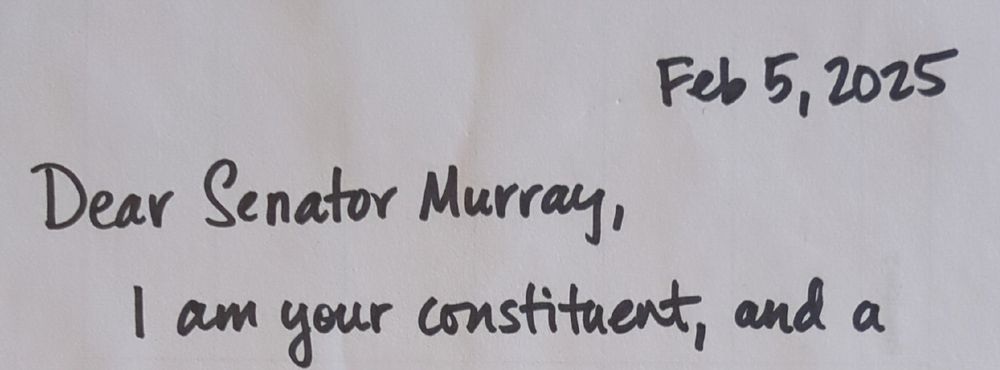 Feb 5, 2025
Dear Senator Murray,
I am your constituent, and a